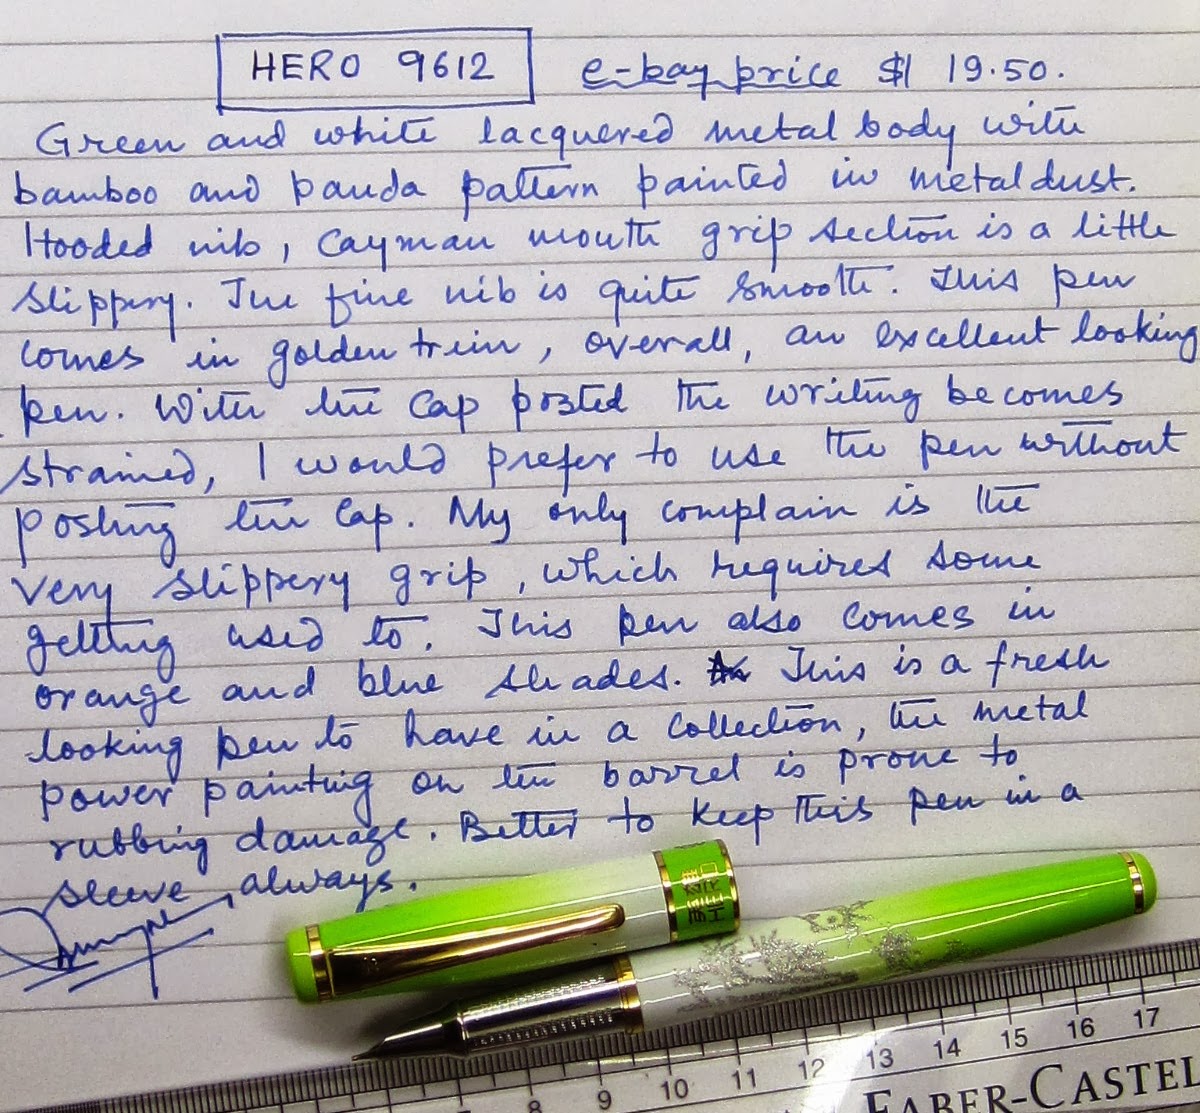 HERO 9612 e-bay price $ 19.50.
Green and white lacquered metal body with
bamboo and panda pattern painted in metal dust.
Hooded nib, Cayman mouth grip section is a little
slippery. The fine nib is quite smooth. This pen
comes in golden trim, overall, an excellent looking
pen. With the cap posted the writing becomes
strained, I would prefer to use the pen without
posting the cap. My only complain is the
very slippery grip, which requires some
getting used to. This pen also comes in
orange and blue shades. This is a fresh
looking pen to have in a collection, the metal
power painting on the barrel is prone to
rubbing damage. Better to keep this pen in a
sleeve, always.
8 9 10 11 12 13 14 15 16 17
FABER-CASTEL